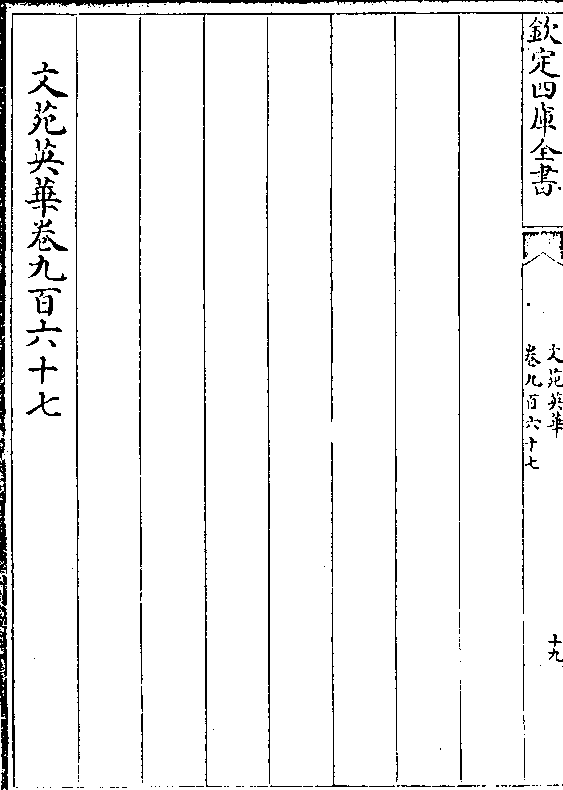 欽定四庫全書
文苑英華
卷九百六十七
十九
文苑英華卷九百六十七